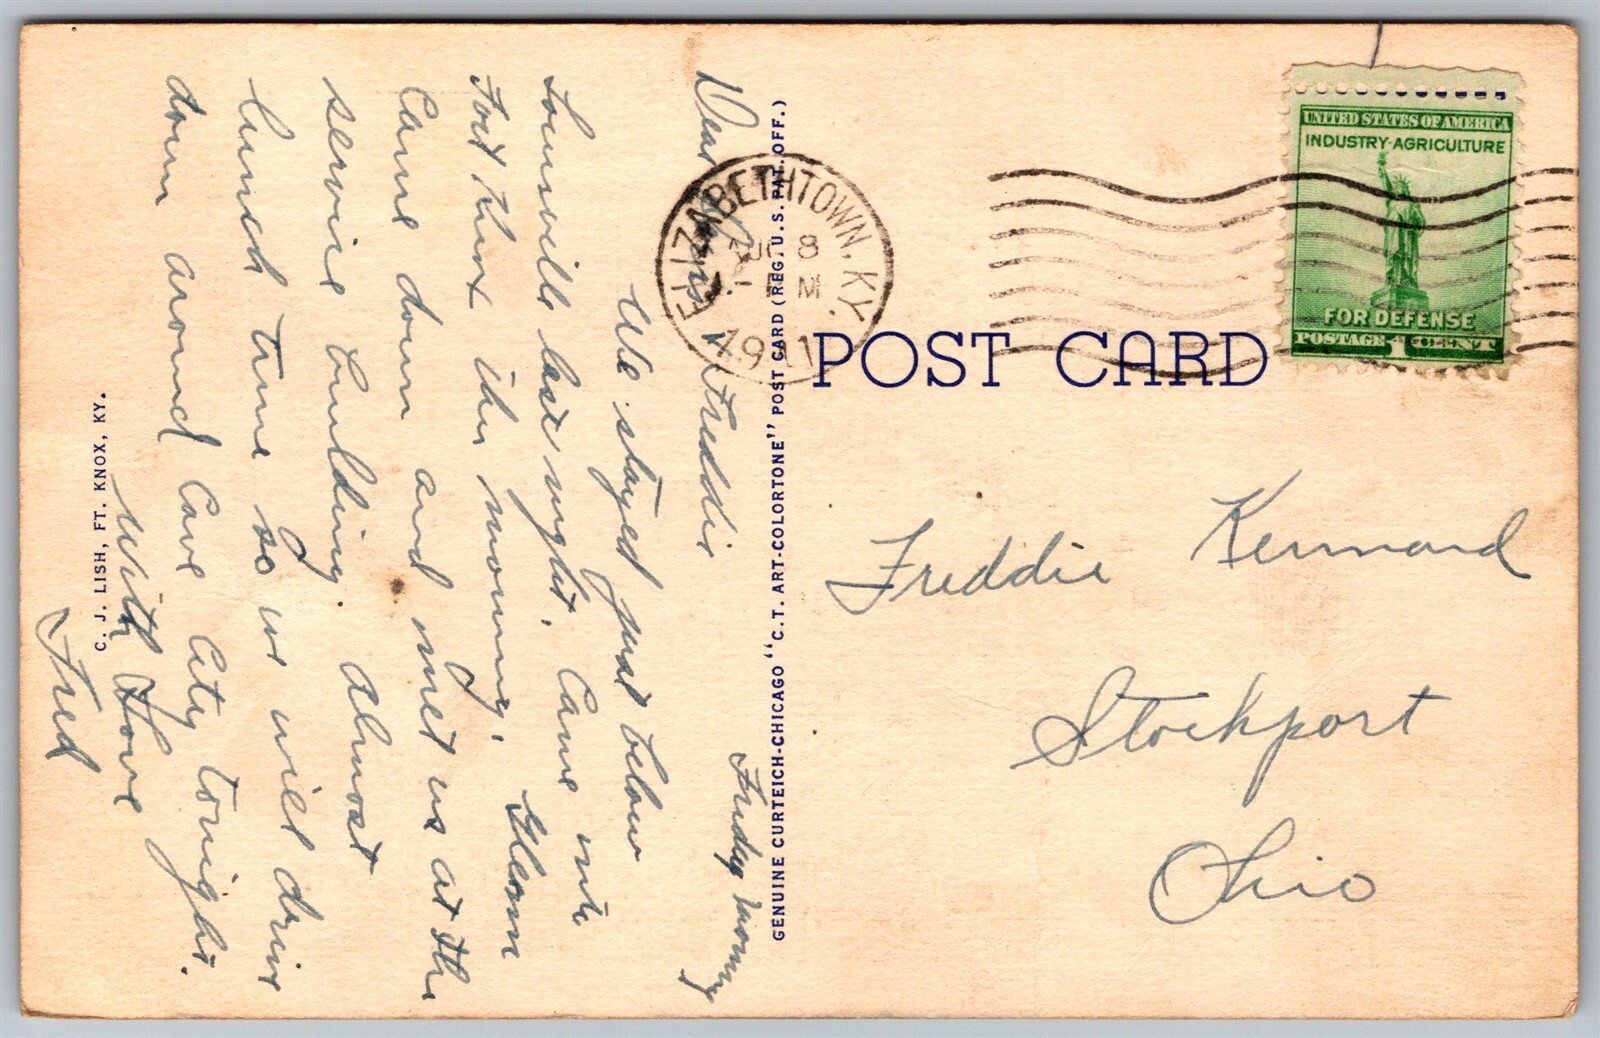 Friday morning
Dear Freddie
We stayed just below
Louisville last night. Came into
Fort Knox this morning. Glenn
came down and met us at the
service building. Almost
lunch time so we will drive
down around Cave City tonight.
With Love
Fred
C. J. LISH, FT. KNOX, KY.
GENUINE CURTEICH-CHICAGO "C.T. ART-COLORTONE" POST CARD (REG. U.S. PAT. OFF.)
ELIZABETHTOWN, KY.
8
PM
1941
POST CARD
UNITED STATES OF AMERICA
INDUSTRY-AGRICULTURE
FOR DEFENSE
POSTAGE 1 CENT
Freddie Kennard
Stockport
Ohio